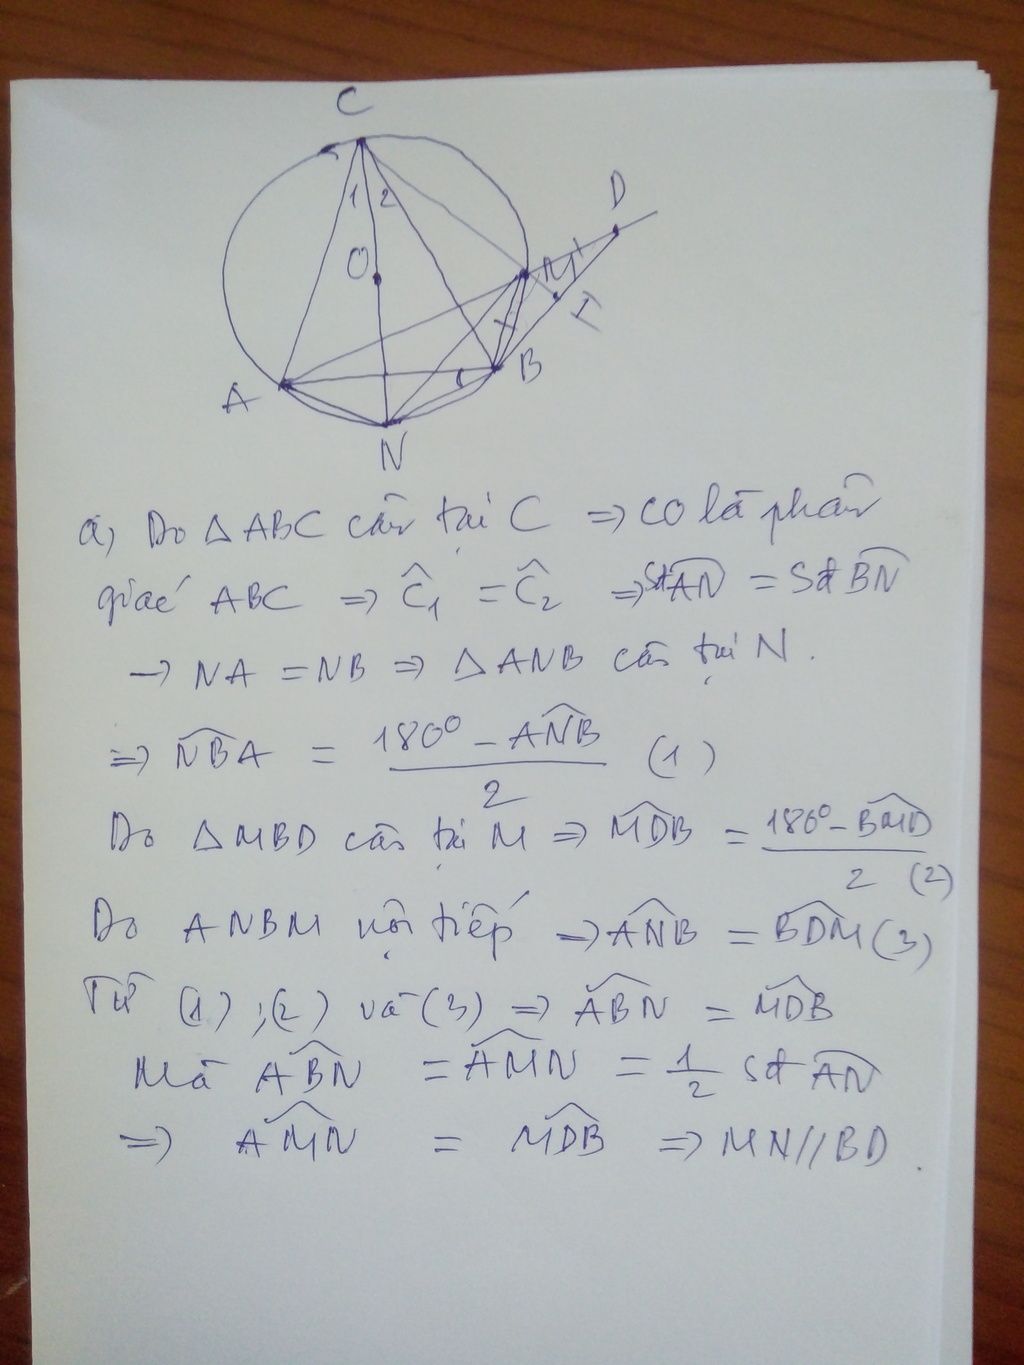 C
D
1 2
O
M
I
1
A
B
N
a, Do △ABC cân tại C ⇒ CO là phân
giác ABC ⇒ Ĉ₁ = Ĉ₂ ⇒ Sđ AN⌒ = Sđ BN⌒
→ NA = NB ⇒ △ANB cân tại N.
⇒ NBA^ = (180⁰ - ANB^)/2 (1)
Do △MBD cân tại M ⇒ MDB^ = (180⁰ - BMD^)/2 (2)
Do ANBM nội tiếp ⇒ ANB^ = BDM^ (3)
Từ (1) ; (2) và (3) ⇒ ABN^ = MDB^
Mà ABN^ = AMN^ = 1/2 Sđ AN⌒
⇒ AMN^ = MDB^ ⇒ MN//BD.